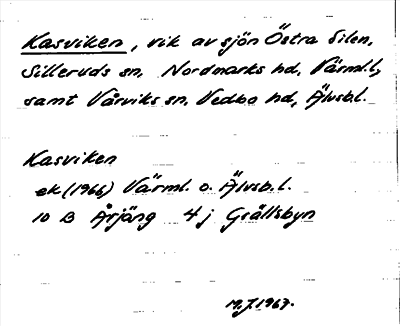 Kasviken, vik av sjön Östra Silen,
Silleruds sn, Nordmarks hd, Värml.l,
samt Vårviks sn, Vedbo hd, Älvsb.l.
Kasviken
ek (1966) Värml. o. Älvsb.l.
10 B Årjäng 4 j Grällsbyn
19.7.1967.